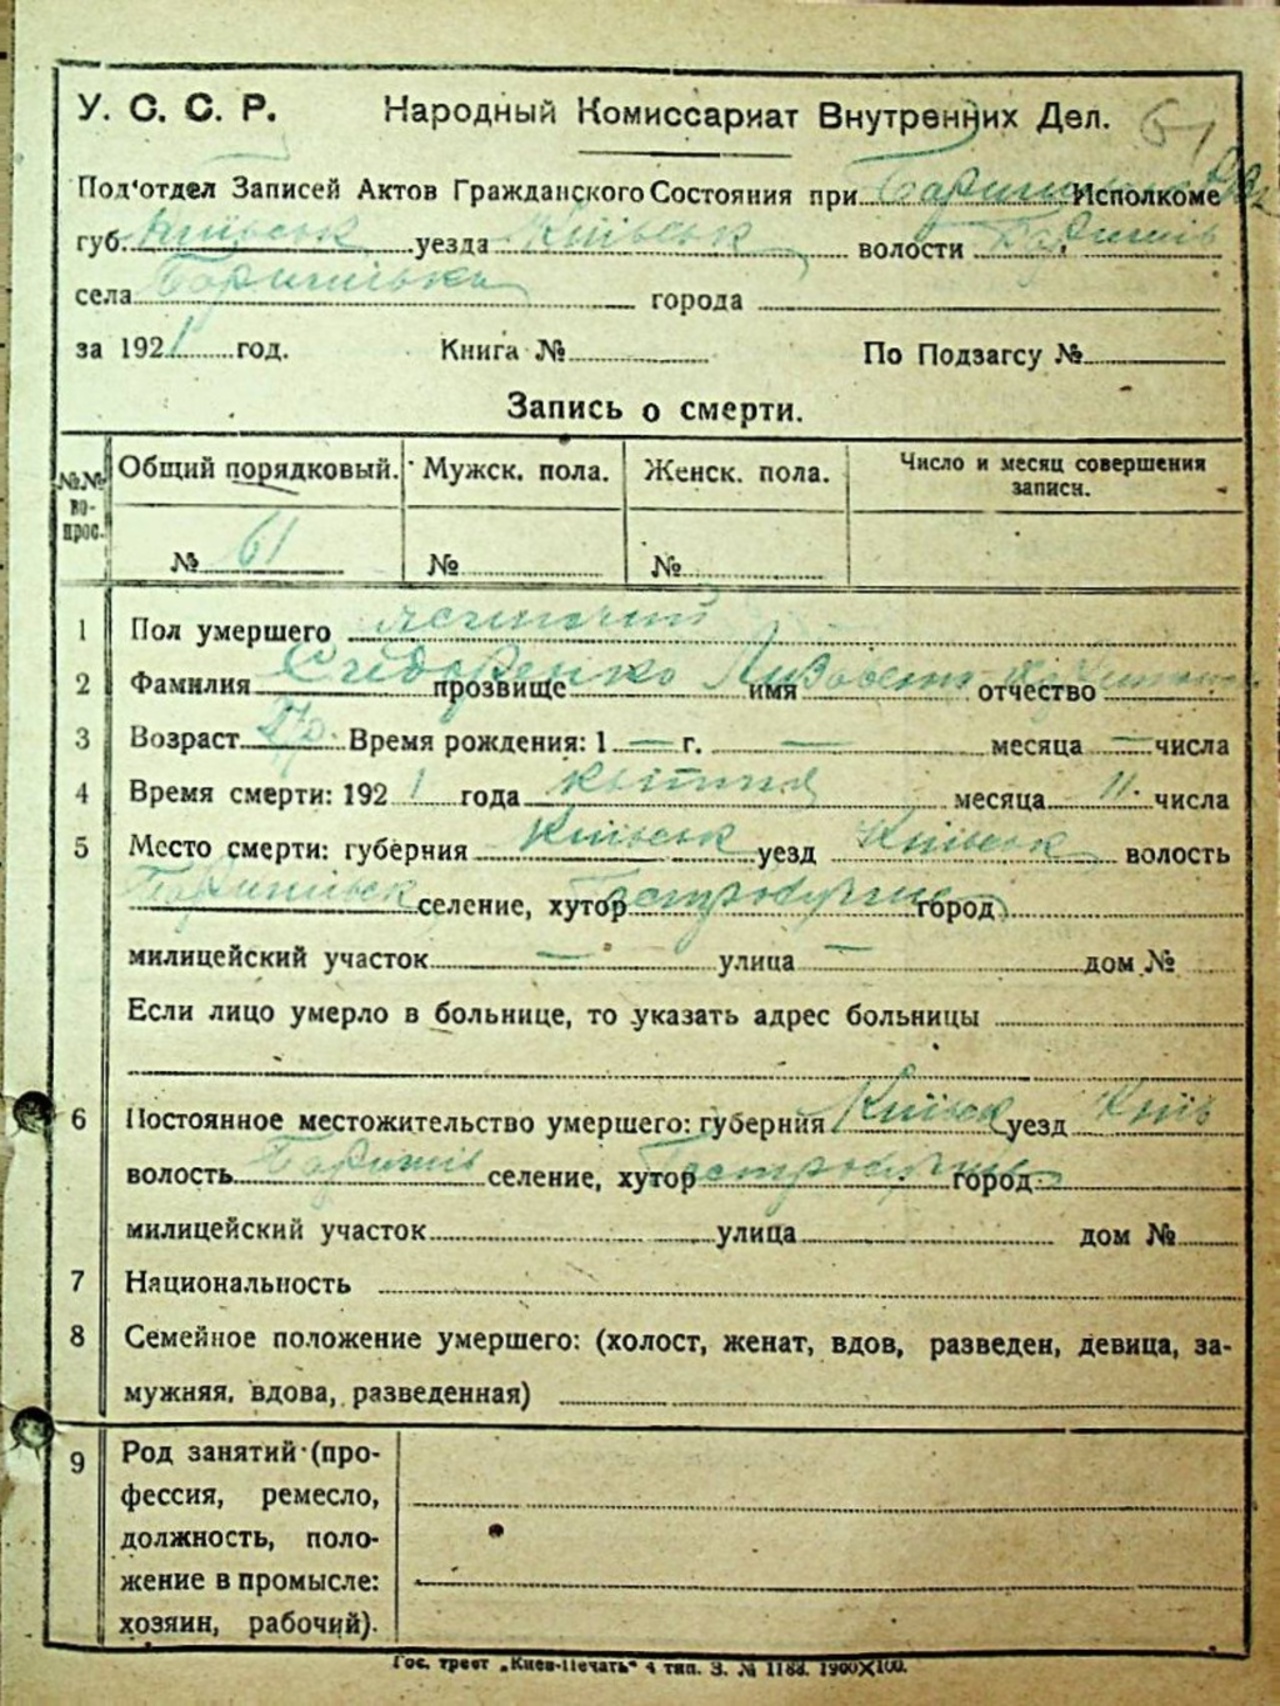 У. С. С. Р. Народный Комиссариат Внутренних Дел. 61
Под'отдел Записей Актов Гражданского Состояния при Исполкоме
губ. Київськ уезда Київськ волости Баришів
села Баришівка города
за 1921 год. Книга № По Подзагсу №
Запись о смерти.
№№ во-прос. Общий порядковый. Мужск. пола. Женск. пола. Число и месяц совершения записи.
№ 61 № №
1 Пол умершего жіночий
2 Фамилия Сидоренко прозвище имя отчество
3 Возраст Время рождения: 1 — г. — месяца — числа
4 Время смерти: 1921 года квітня месяца 11. числа
5 Место смерти: губерния Київськ уезд Київськ волость
Баришівськ селение, хутор город
милицейский участок — улица — дом №
Если лицо умерло в больнице, то указать адрес больницы
6 Постоянное местожительство умершего: губерния Київськ уезд Київ
волость Баришів селение, хутор город
милицейский участок улица дом №
7 Национальность
8 Семейное положение умершего: (холост, женат, вдов, разведен, девица, за-
мужняя, вдова, разведенная)
9 Род занятий (про-
фессия, ремесло,
должность, поло-
жение в промысле:
хозяин, рабочий).
Гос. трест „Киев-Печать“ 4 тип. З. № 1188. 1900X100.